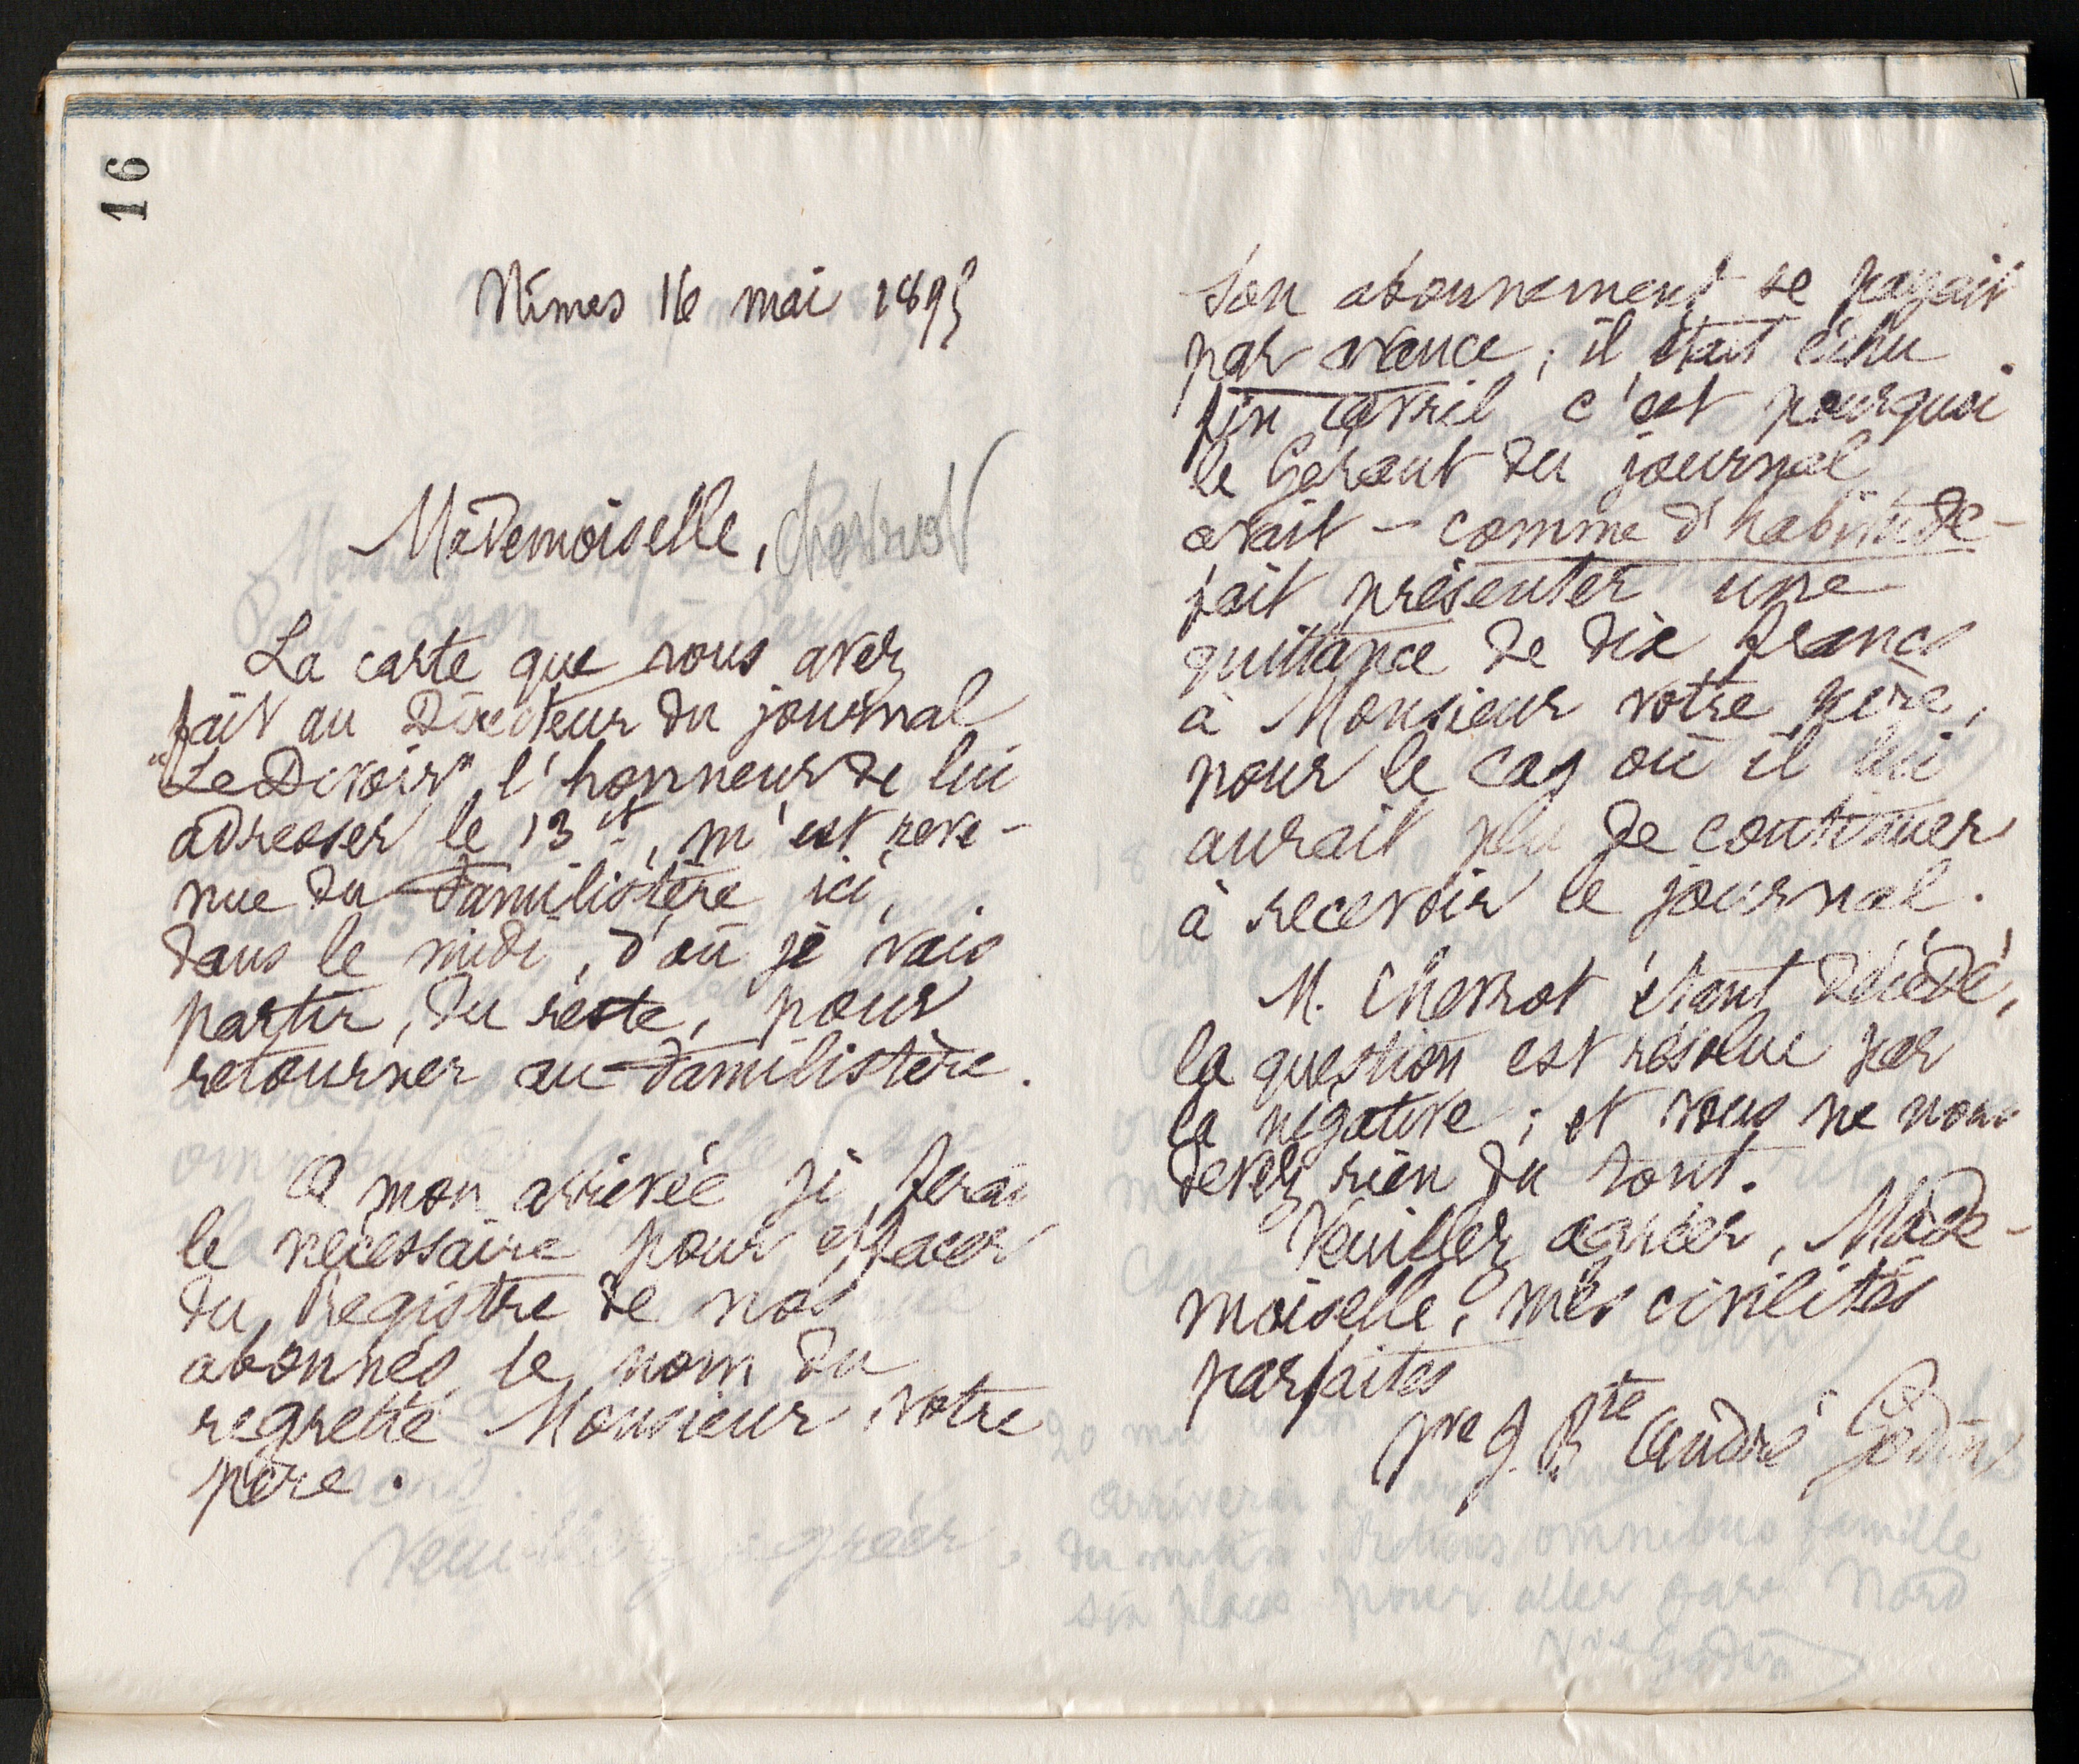 16
Nîmes 16 mai 1895
Mademoiselle, Chevrot
La carte que vous avez
fait au Directeur du journal
"Le Devoir" l'honneur de lui
adresser le 13 ct, m'est reve-
nue du Familistère ici,
dans le midi, d'où je vais
partir, du reste, pour
retourner au Familistère.
A mon arrivée je ferai
le nécessaire pour effacer
du Registre de nos
abonnés le nom du
regretté Monsieur votre
père.
Son abonnement se payait
par avance; il était échu
fin avril c'est pourquoi
le Gérant du journal
avait - comme d'habitude -
fait présenter une
quittance de dix francs
à Monsieur votre père,
pour le cas où il lui
aurait plu de continuer
à recevoir le journal.
M. Chevrot étant décédé,
la question est résolue par
la négative; et vous ne nous
devez rien du tout.
Veuillez agréer, Made-
moiselle, mes civilités
parfaites
Vve J. Bte André Godin